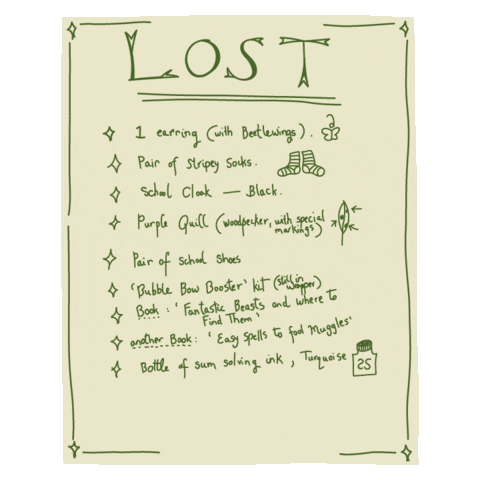 LOST
1 earring (with Beetlewings).
Pair of stripey Socks.
School Cloak — Black.
Purple Quill (woodpecker, with special
markings)
Pair of School Shoes
'Bubble Bow Booster' kit (still in
wrapper)
Book : 'Fantastic Beasts and where to
Find Them'
another Book : 'Easy Spells to fool Muggles'
Bottle of sum solving ink , Turquoise
SS